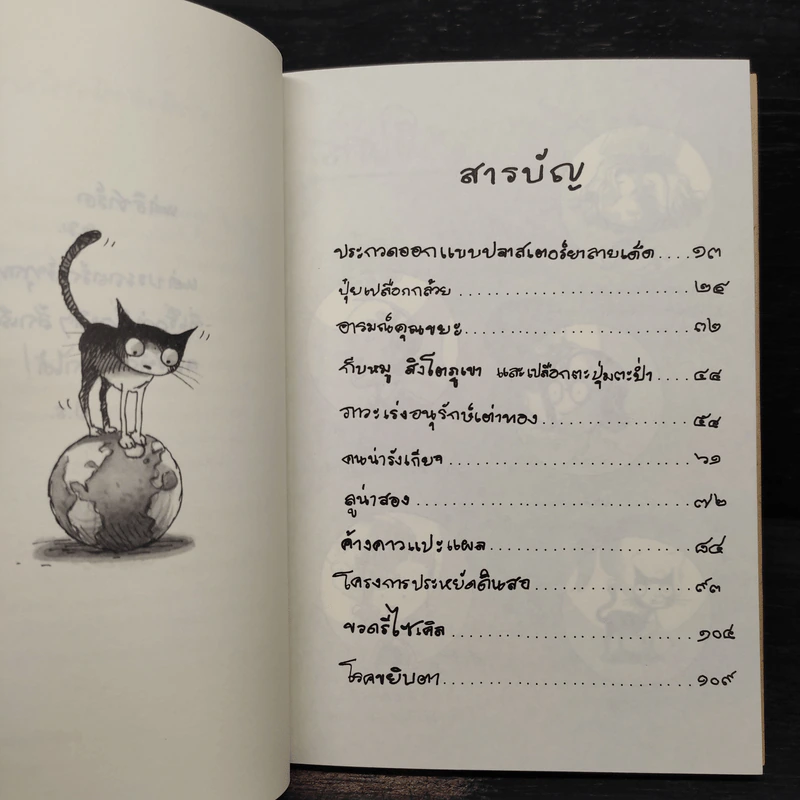 สารบัญ
ประกวดออกแบบปลาสเตอร์ยาลายเด็ด....๑๓
ปุ๋ยเปลือกกล้วย..........................๒๔
อารมณ์คุณขยะ..........................๓๒
กีบหมู สิงโตภูเขา และเปลือกตะปุ่มตะป่ำ....๔๔
ภาวะเร่งอนุรักษ์เต่าทอง.................๕๔
คนน่ารังเกียจ...........................๖๑
ลูน่าสอง...............................๗๒
ค้างคาวแปะแผล........................๘๔
โครงการประหยัดดินสอ..................๙๓
ขวดรีไซเคิล............................๑๐๔
โรคขยิบตา.............................๑๐๙